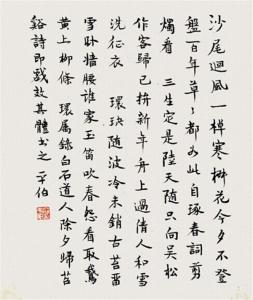 沙尾迴風一棹寒椒花今夕不登
盤百年草〻都如此自琢春詞剪
燭看 三生定是陸天隨只向吳松
作客歸已拚新年舟上過倩人和雪
洗征衣 環玦隨波冷未銷古苔畱
雪卧墻腰誰家玉笛吹春怨看取鵞
黄上柳條 環屬錄白石道人除夕歸苕
谿詩即戲效其體書之 平伯